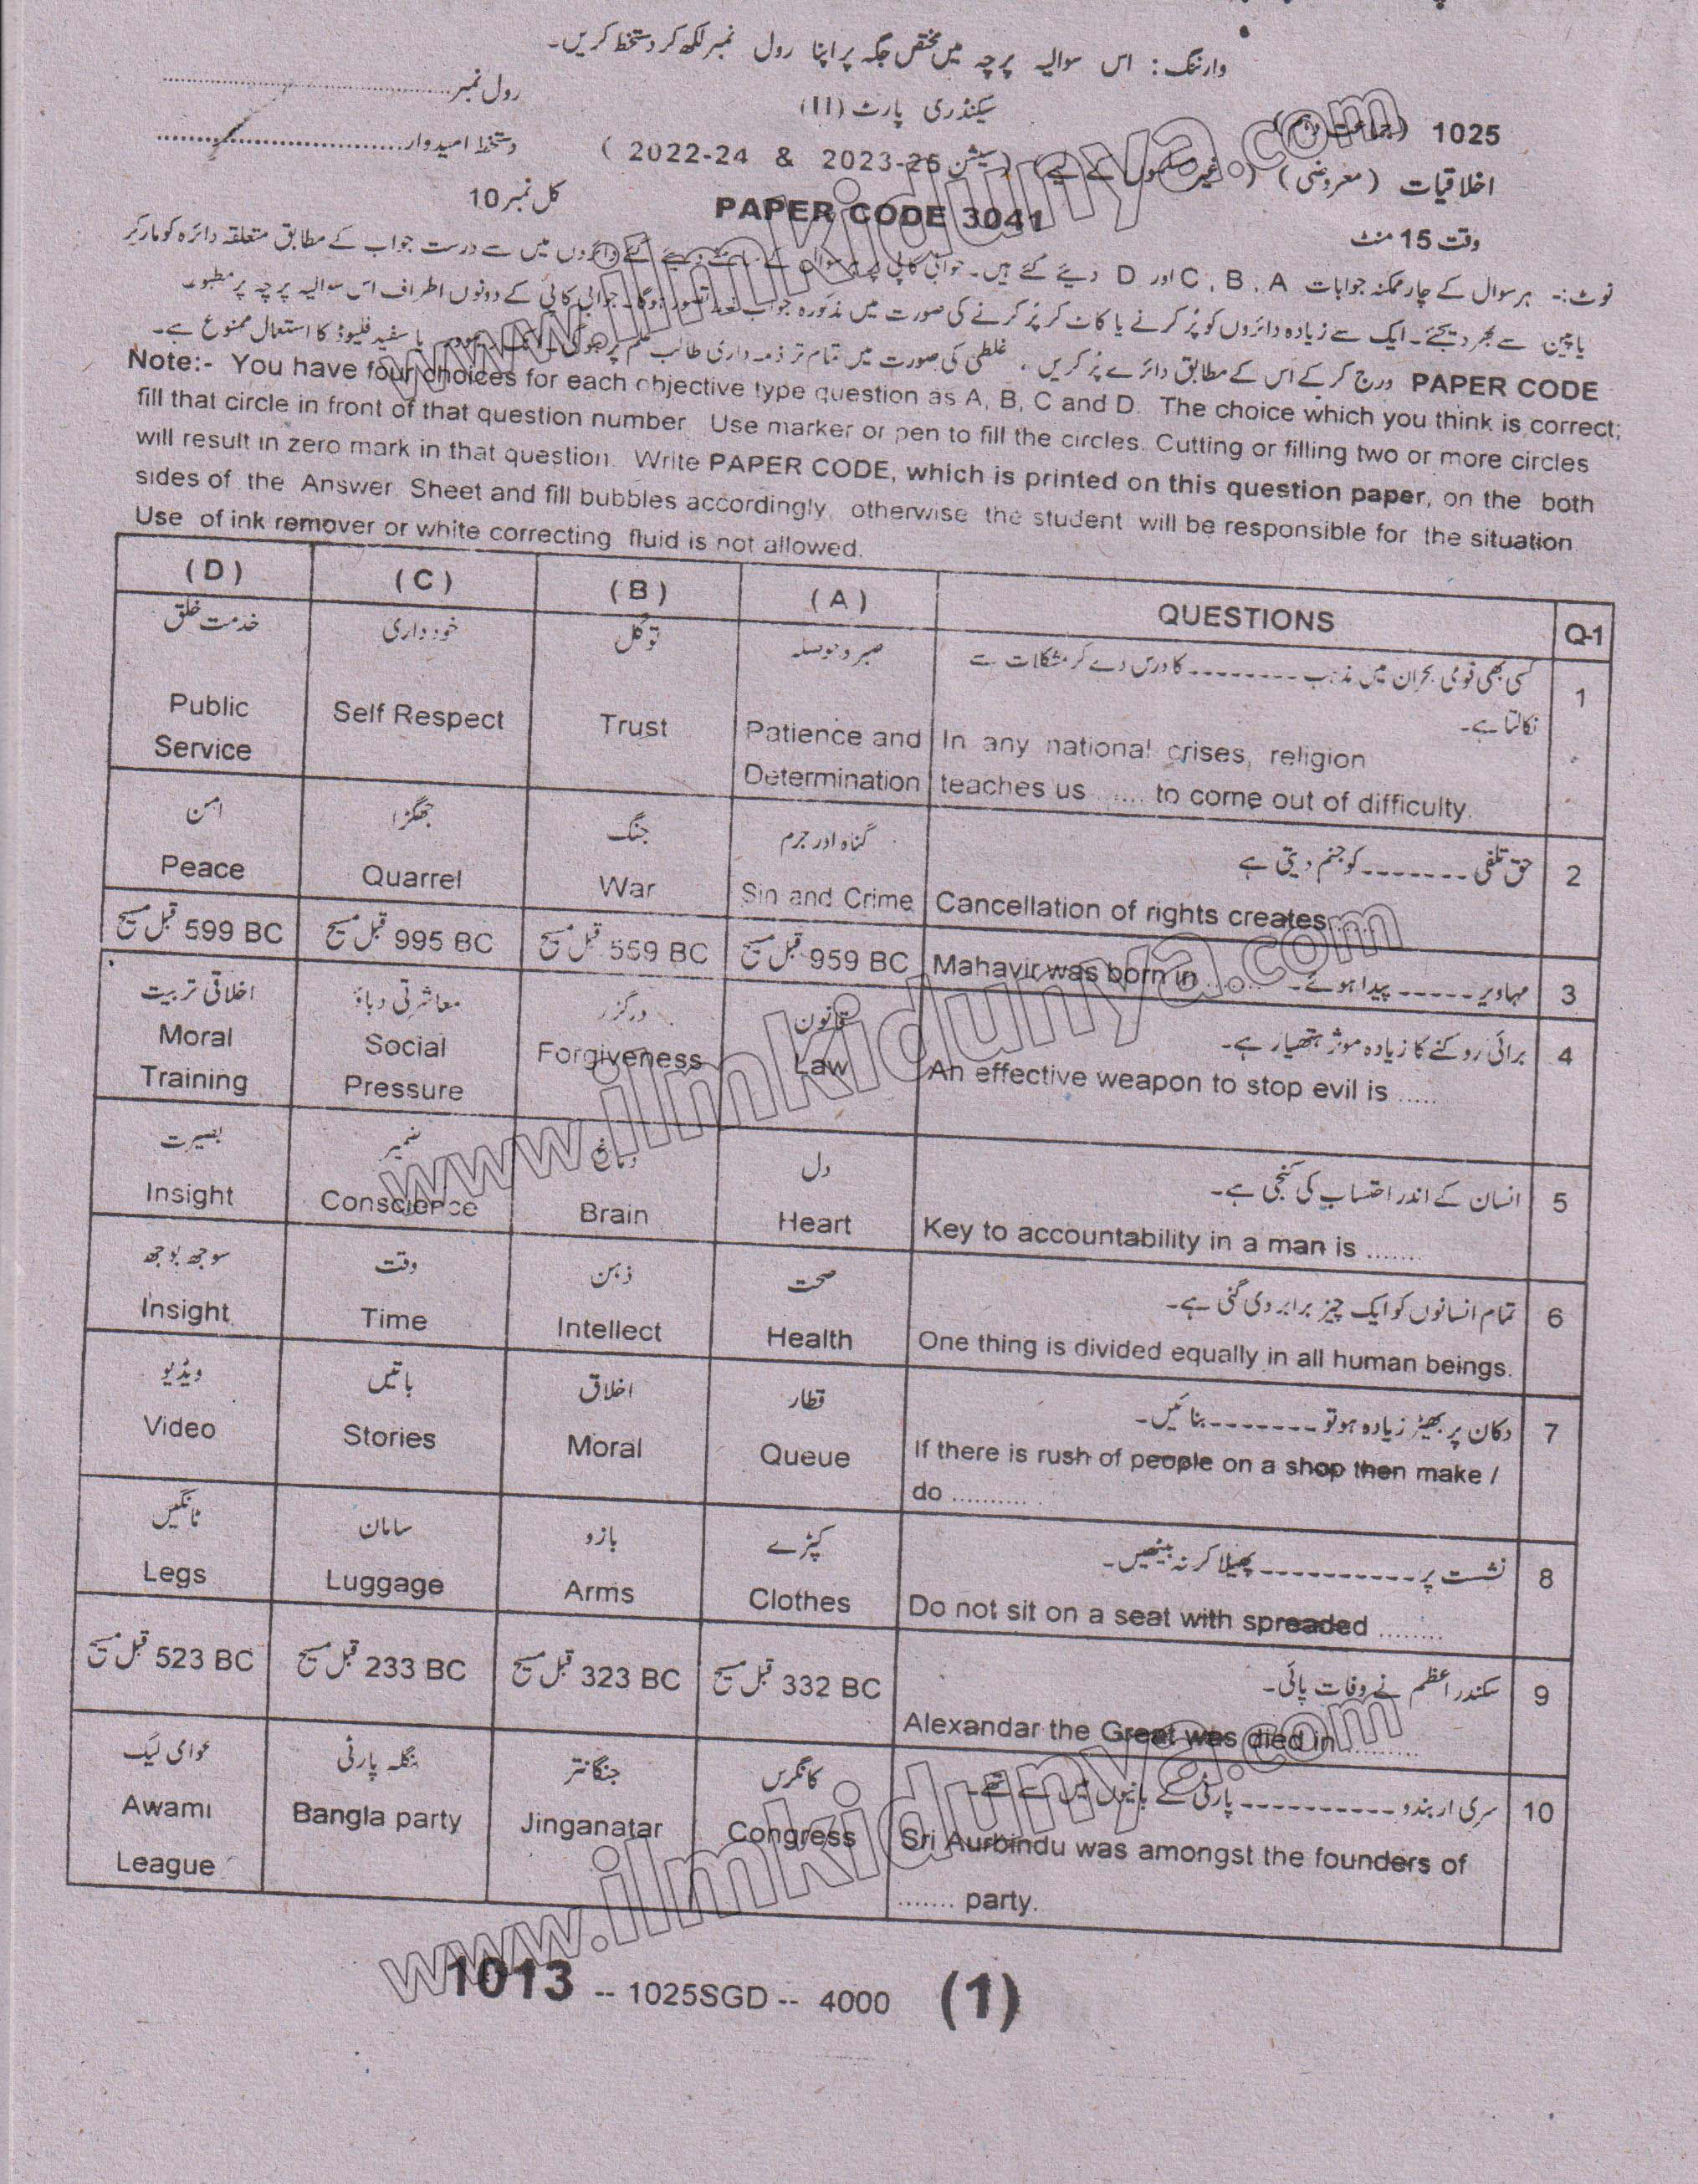 وارننگ: اس سوالیہ پرچہ میں مختص جگہ پر اپنا رول نمبر لکھ کر دستخط کریں۔
رول نمبر
سیکنڈری پارٹ (II)
1025 (جماعت دہم)
دستخط امیدوار
اخلاقیات (معروضی) (غیر مسلموں کے لیے) (سیشن 2023-25 & 2022-24)
کل نمبر 10
PAPER CODE 3041
وقت 15 منٹ
نوٹ:- ہر سوال کے چار ممکنہ جوابات A ، B ، C اور D دیئے گئے ہیں۔ جوابی کاپی پر ہر سوال کے سامنے دیئے گئے دائروں میں سے درست جواب کے مطابق متعلقہ دائرہ کو مارکر
یا پین سے بھر دیجئے۔ ایک سے زیادہ دائروں کو پُر کرنے یا کاٹ کر پُر کرنے کی صورت میں مذکورہ جواب غلط تصور ہوگا۔ جوابی کاپی کے دونوں اطراف اس سوالیہ پرچہ پر مطبوعہ
PAPER CODE درج کر کے اس کے مطابق دائرے پُر کریں ، غلطی کی صورت میں تمام تر ذمہ داری طالب علم پر ہوگی۔ یا سفید فلیوڈ کا استعمال ممنوع ہے۔
Note:- You have four choices for each objective type question as A, B, C and D. The choice which you think is correct;
fill that circle in front of that question number. Use marker or pen to fill the circles. Cutting or filling two or more circles
will result in zero mark in that question. Write PAPER CODE, which is printed on this question paper, on the both
sides of the Answer Sheet and fill bubbles accordingly, otherwise the student will be responsible for the situation.
Use of ink remover or white correcting fluid is not allowed.
(D) (C) (B) (A) QUESTIONS Q-1
خدمت خلق خود داری توکل صبر و حوصلہ کسی بھی قومی بحران میں مذہب --------- کا درس دے کر مشکلات سے 1
نکالتا ہے۔
Public Self Respect Trust Patience and In any national crises, religion
Service Determination teaches us ...... to come out of difficulty.
امن جھگڑا جنگ گناہ اور جرم حق تلفی ------- کو جنم دیتی ہے 2
Peace Quarrel War Sin and Crime Cancellation of rights creates
599 BC قبل مسیح 995 BC قبل مسیح 559 BC قبل مسیح 959 BC قبل مسیح Mahavir was born in ....... مہاویر ----- پیدا ہوئے۔ 3
اخلاقی تربیت معاشرتی دباؤ درگزر قانون برائی روکنے کا زیادہ موثر ہتھیار ہے۔ 4
Moral Social Forgiveness Law An effective weapon to stop evil is .....
Training Pressure
بصیرت ضمیر دماغ دل انسان کے اندر احتساب کی کنجی ہے۔ 5
Insight Conscience Brain Heart Key to accountability in a man is .......
سوجھ بوجھ وقت ذہن صحت تمام انسانوں کو ایک چیز برابر دی گئی ہے۔ 6
Insight Time Intellect Health One thing is divided equally in all human beings.
ویڈیو باتیں اخلاق قطار دکان پر بھیڑ زیادہ ہو تو ------- بنائیں۔ 7
Video Stories Moral Queue If there is rush of people on a shop then make /
do ..........
ٹانگیں سامان بازو کپڑے نشست پر ---------- پھیلا کر نہ بیٹھیں۔ 8
Legs Luggage Arms Clothes Do not sit on a seat with spreaded ........
523 BC قبل مسیح 233 BC قبل مسیح 323 BC قبل مسیح 332 BC قبل مسیح سکندر اعظم نے وفات پائی۔ 9
Alexandar the Great was died in .........
عوامی لیگ بنگلہ پارٹی جنگانتر کانگرس سری اربندو ---------- پارٹی کے بانیوں میں سے تھے۔ 10
Awami Bangla party Jinganatar Congress Sri Aurbindu was amongst the founders of
League ....... party.
1013 -- 1025SGD -- 4000 (1)
www.ilmkidunya.com
www.ilmkidunya.com
www.ilmkidunya.com